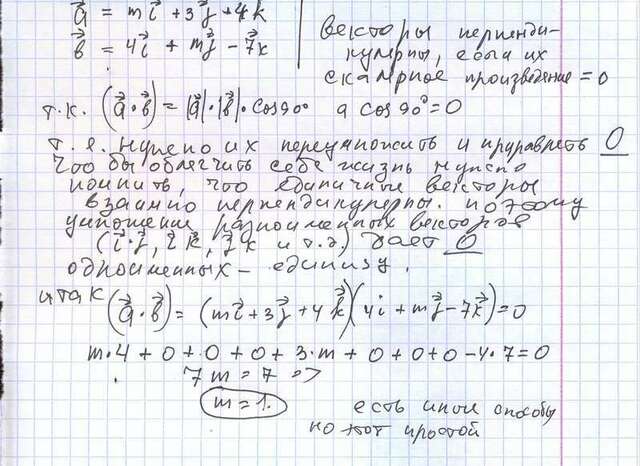 a⃗ = mi⃗ + 3j⃗ + 4k
b⃗ = 4i⃗ + mj⃗ - 7k⃗
векторы перпенди-
кулярны, если их
скалярное произведение = 0
т.к. (a⃗·b⃗) = |a⃗|·|b⃗|·cos90° а cos90°=0
т.е. нужно их перемножить и приравнять 0
Что бы облегчить себе жизнь нужно
помнить, что единичные векторы
взаимно перпендикулярны. поэтому
умножение разноименных векторов
(i⃗·j⃗, i⃗k⃗, j⃗k и т.д.) дает 0
одноименных - единицу.
итак (a⃗·b⃗) = (mi⃗+3j⃗+4k⃗)(4i+mj⃗-7k⃗)=0
m·4 + 0 + 0 + 0 + 3·m + 0 + 0 + 0 - 4·7=0
7m = 7 =>
m = 1.
есть иные способы
но этот простой